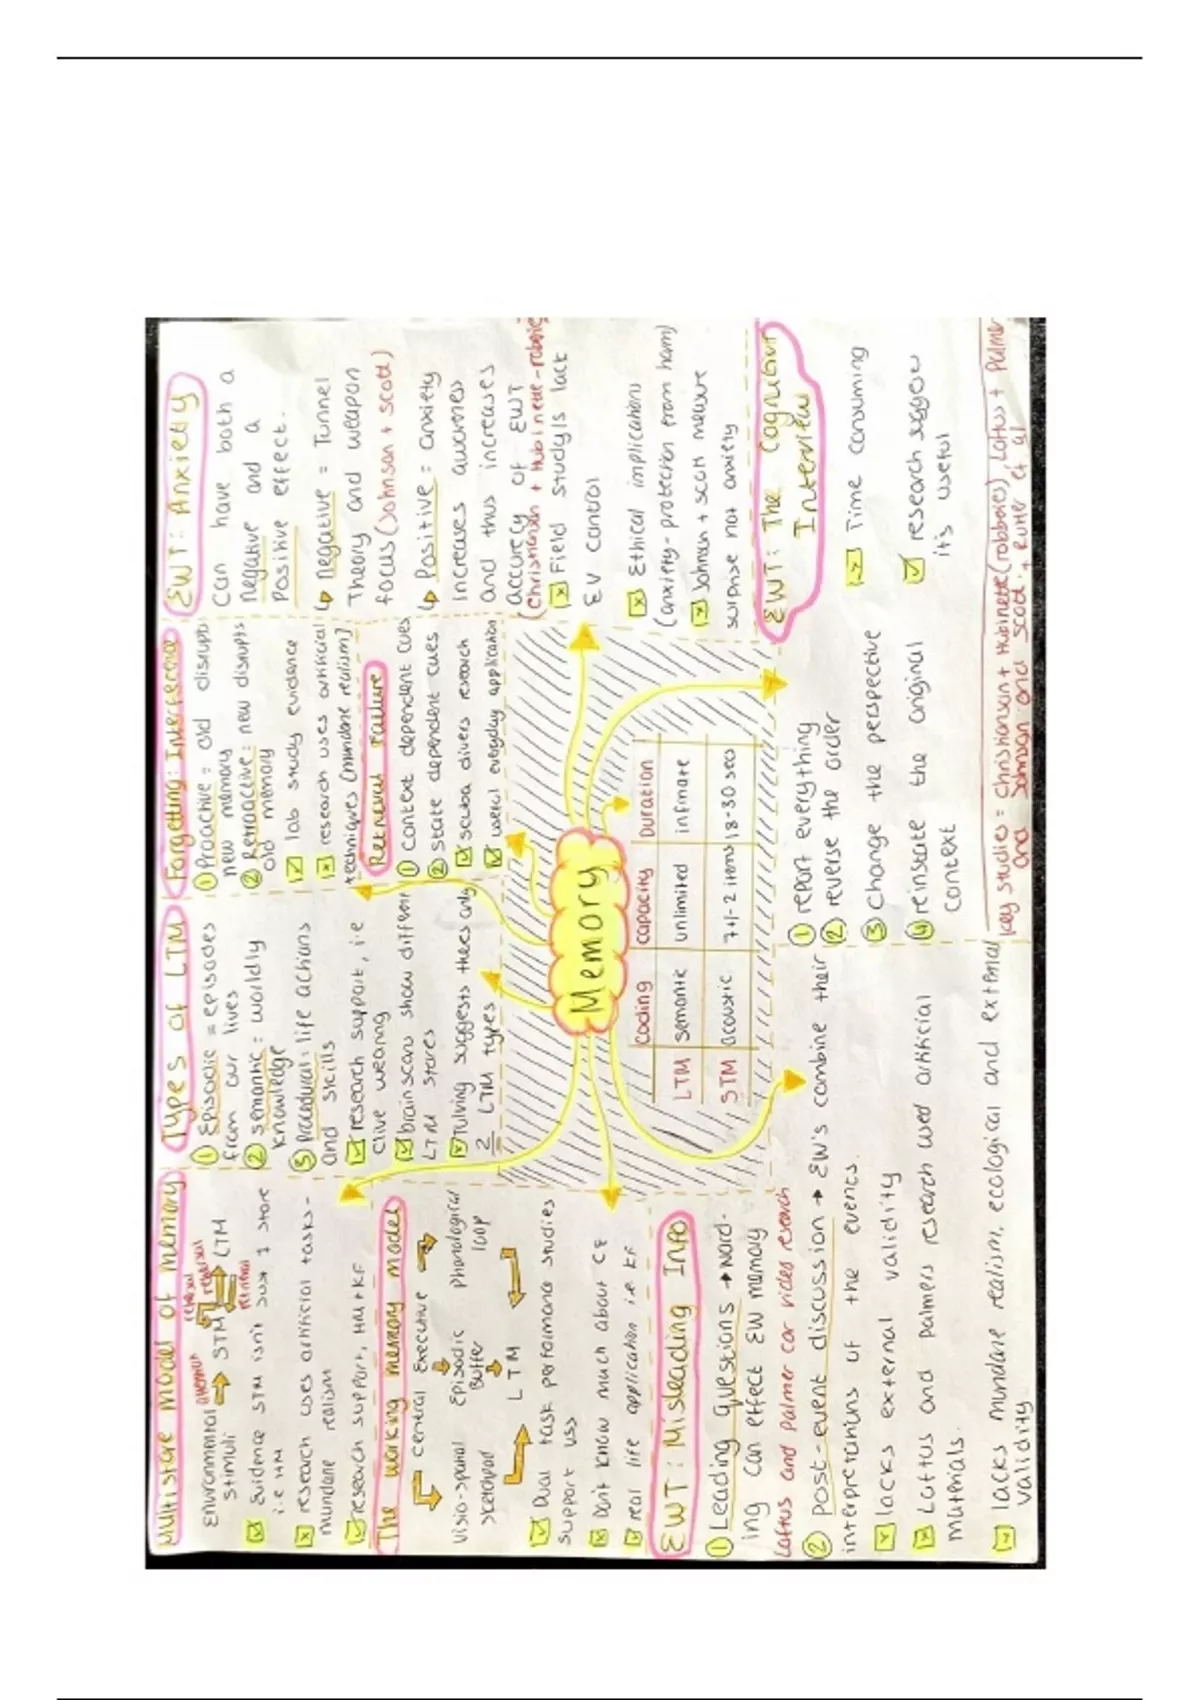 Multistore model of memory
Environmental stimuli → STM ⇌ LTM
attention
rehersal
rehearsal
retrieval
Evidence STM isn't just 1 store
i.e HM
research uses artificial tasks -
mundane realism
research support, HM + KF
The working memory model
central Executive
Visio-spatial
sketchpad
Episodic
Buffer
Phonological
loop
LTM
Dual task performance studies
support uss
Don't know much about CE
real life application i.e KF
EWT: Misleading Info
① Leading questions → word-
ing can effect EW memory
Loftus and Palmer car video research
② Post-event discussion → EW's combine their
interpretations of the events.
lacks external validity
Loftus and Palmers research used artificial
materials.
lacks mundane realism, ecological and external
validity
Types of LTM
① Episodic = episodes
from our lives
② semantic = worldly
knowledge
③ procedural: life actions
and skills
research support, i.e
clive wearing
brain scans show different
LTM stores
Tulving suggests theres only
2 LTM types
Forgetting: Interference
① Proactive = old disrupts
new memory
② Retroactive: new disrupts
old memory
lab study evidence
research uses artificial
techniques (mundane realism)
Retrieval Failure
① context dependent cues
② state dependent cues
scuba divers research
useful everyday application
EWT: Anxiety
Can have both a
negative and a
positive effect.
↳ negative = Tunnel
Theory and weapon
focus (Johnson + scott)
↳ Positive = anxiety
increases
and thus increases
accurecy of EWT
(Christianson + Hubinette - robberies
Field studys lack
EV control
Ethical implications
(anxiety - protection from harm)
Johnson + scott measure
surprise not anxiety
Memory
coding capacity Duration
LTM semantic unlimited infinate
STM acoustic 7+/-2 items 18-30 secs
EWT: The Cognitive
Interview
① report everything
② reverse the order
③ change the perspective
④ reinstate the original
context
Time consuming
research suggests
it's useful
key studies = Christianson + Hubinette (robberies), Loftus + Palmer
and Johnson and scott. + Rutter et al